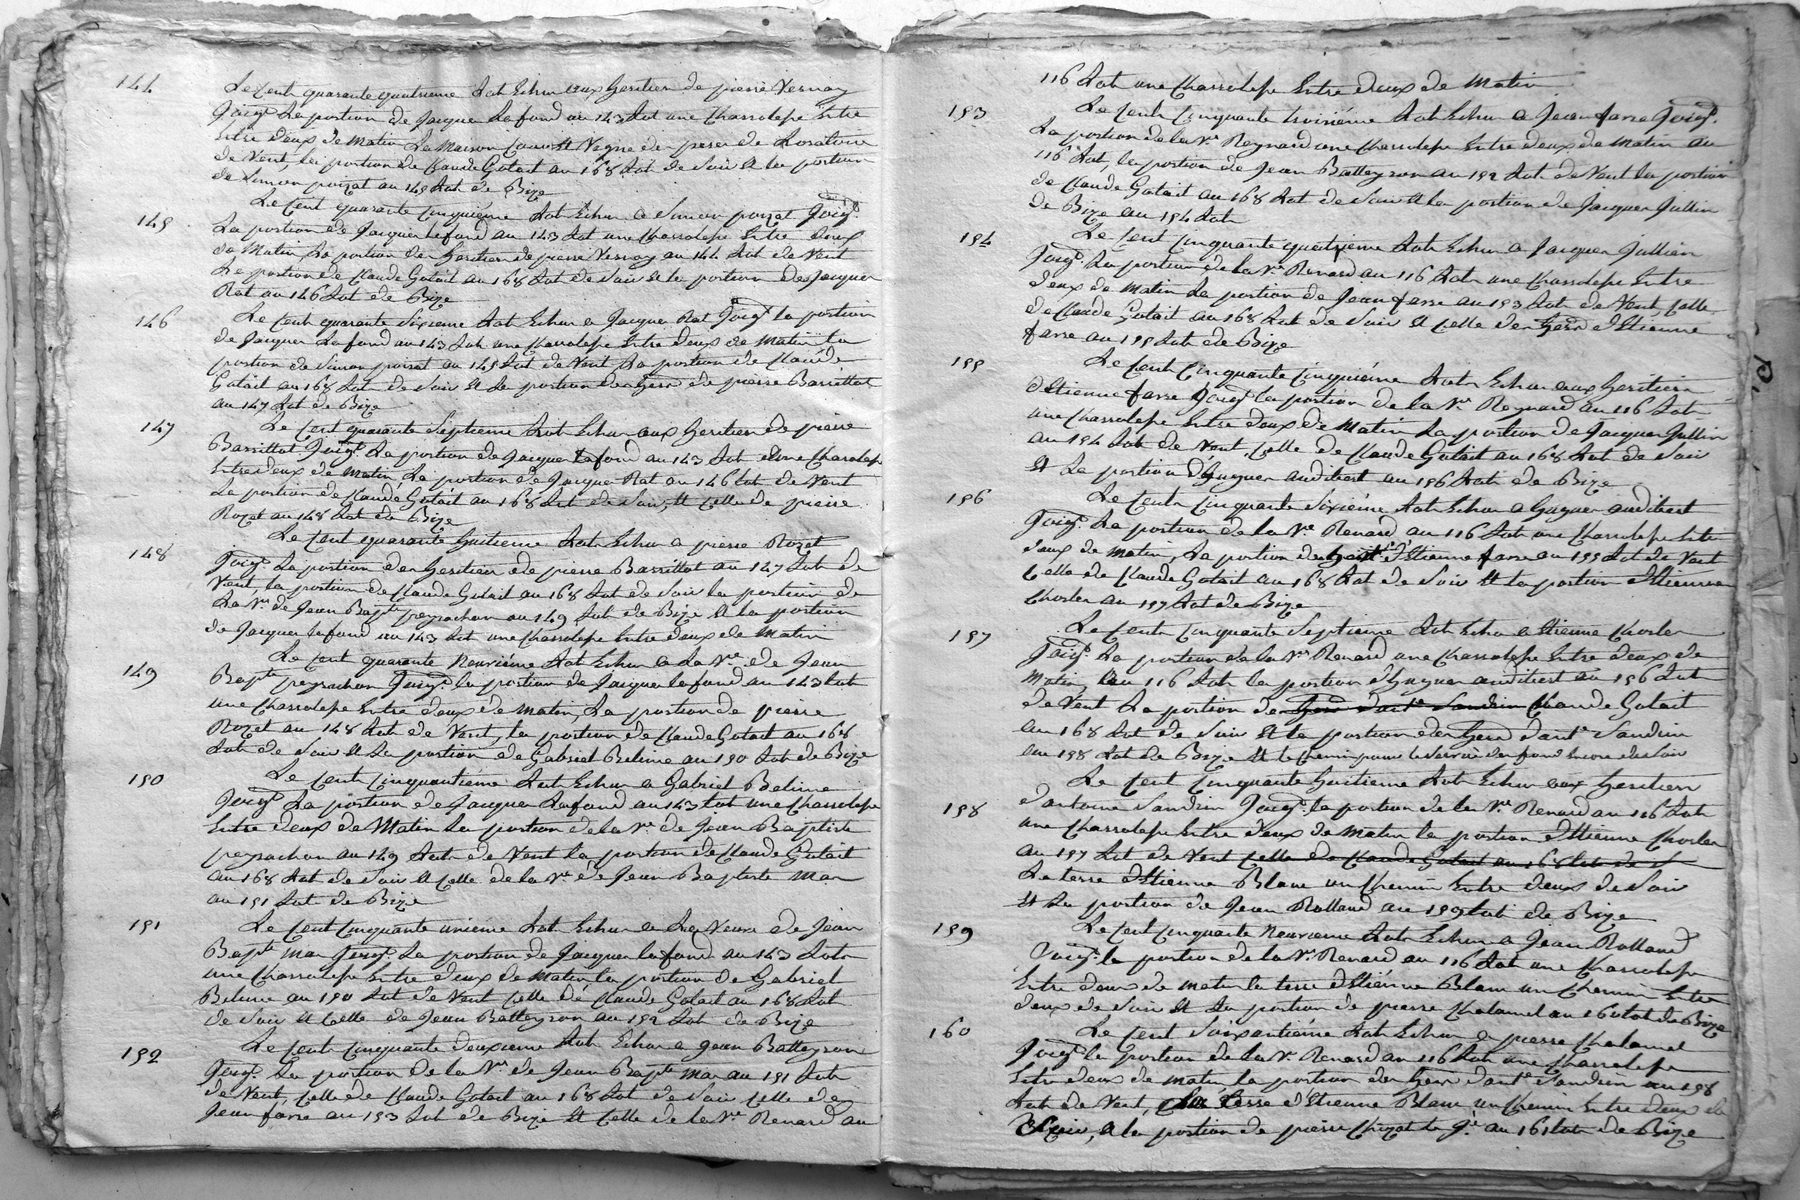 144
Le Cent quarante quatrieme Lot Echu aux heritier de pierre Vernay
Joig.t La portion de Jacque Lafond au 143 Lot une Charrolepe Entre
Entre deux de Matin La Maison de
de Vent, la portion de Claude Golait au 168 Lot de Soir Et la portion
de Simon poizat au 145 Lot de Bize
145
Le Cent quarante Cinquiéme Lot Echu a Simon poizat Joig.t
La portion de Jacque Lafond au 143 Lot une Charrolepe Entre deux
de Matin La portion des heritier de pierre Vernay au 144 Lot de Vent
La portion de Claude Golait au 168 Lot de Soir Et la portion de Jacque
Rat au 146 Lot de Bize
146
Le Cent quarante Sixieme Lot Echu a Jacque Rat Joig.t la portion
de Jacque Lafond au 143 Lot une Charrolepe Entre deux de Matin la
portion de Simon poizat au 145 Lot de Vent La portion de Claude
Golait au 168 Lot de Soir Et La portion des hers de pierre Barrittot
au 147 Lot de Bize
147
Le Cent quarante Septieme Lot Echu aux heritier de pierre
Barrittot Joig.t La portion de Jacque Lafond au 143 Lot une Charolepe
Entre deux de Matin, La portion de Jacque Rat au 146 Lot de Vent
La portion de Claude Golait au 168 Lot de Soir, Et Celle de pierre
Rozat au 148 Lot de Bize
148
Le Cent quarante huitieme Lot Echu a pierre Rozat
Joig.t La portion des heritier de pierre Barrittot au 147 Lot de
Vent, la portion de Claude Golait au 168 Lot de Soir la portion de
La V.ve de Jean Bap.te peyrachon au 149 Lot de Bize Et La portion
de Jacque Lafond au 143 Lot une Charrolepe Entre deux de Matin
149
Le Cent quarante Neuviéme Lot Echu a La V.ve de Jean
Bap.te peyrachon Joig.t la portion de Jacque lafond au 143 Lot
une Charrolepe Entre deux de Matin, La portion de pierre
Rozat au 148 Lot de Vent, la portion de Claude Golait au 168
Lot de Soir Et La portion de Gabriel Belime au 150 Lot de Bize
150
Le Cent Cinquantiéme Lot Echu a Gabriel Belime
Joig.t La portion de Jacque Lafond au 143 Lot une Charrolepe
Entre deux de Matin La portion de la V.e de Jean Baptiste
peyrachon au 149 Lot de Vent la portion de Claude Golait
au 168 Lot de Soir Et Celle de la V.e de Jean Baptiste Mar
au 151 Lot de Bize
151
Le Cent Cinquante unieme Lot Echu a La Veuve de Jean
Bap.te Mar Joig.t La portion de Jacque lafond au 143 Lot
une Charrolepe Entre deux de Matin la portion de Gabriel
Belime au 150 Lot de Vent Celle de Claude Golait au 168 Lot
de Soir Et Celle de Jean Batteyron au 152 Lot de Bize
152
Le Cent Cinquante deuxieme Lot Echu a Jean Batteyron
Joig.t La portion de La V.ve de Jean Bap.te Mar au 151 Lot
de Vent, Celle de Claude Golait au 168 Lot de Soir Celle de
Jean farre au 153 Lot de Bize Et Celle de la V.ve Renard au
116 Lot une Charrolepe Entre deux de Matin
153
Le Cent Cinquante troisiéme Lot Echu a Jean farre Joig.t
La portion de la V.e Reynard une Charrolepe Entre deux de Matin au
116 Lot, la portion de Jean Batteyron au 152 Lot de Vent la portion
de Claude Golait au 168 Lot de Soir Et la portion de Jacque Jullin
de Bize au 154 Lot
154
Le Cent Cinquante quatrieme Lot Echu a Jacque Jullien
Joig.t La portion de la V.e Renard au 116 Lot une Charrolepe Entre
deux de Matin La portion de Jean farre au 153 Lot de Vent, Celle
de Claude Golait au 168 Lot de Soir Et Celle des hers d'Etienne
farre au 155 Lot de Bize
155
Le Cent Cinquante Cinquiéme Lot Echu aux heritier
d'Etienne farre Joig.t la portion de la V.e Reynard au 116 Lot
une Charrolepe Entre deux de Matin La portion de Jacque Jullin
au 154 Lot de Vent, Celle de Claude Golait au 168 Lot de Soir
Et La portion d'huguer audibert au 156 Lot de Bize
156
Le Cent Cinquante Sixiéme Lot Echu a huguer audibert
Joig.t La portion de la V.e Renard au 116 Lot une Charrolepe Entre
deux de Matin, La portion des d'Etienne farre au 155 Lot de Vent
Celle de Claude Golait au 168 Lot de Soir Et la portion d'Etienne
Chorlen au 157 Lot de Bize
157
Le Cent Cinquante Septieme Lot Echu a Etienne Chorlen
Joig.t La portion de la V.e Renard une Charrolepe Entre deux de
Matin, au 116 Lot la portion d'huguer audibert au 156 Lot
de Vent La portion de Claude Golait
au 168 Lot de Soir Et la portion des hers d'ant.e Sandin
au 158 Lot de Bize Et le Chemin pour le Service des fond Encore de Soir
158
Le Cent Cinquante huitieme Lot Echu aux heritier
d'antoine Sandin Joig.t la portion de la V.ve Renard au 116 Lot
une Charrolepe Entre deux de Matin la portion d'Etienne Chorlen
au 157 Lot de Vent Celle de Claude Golait au 168 Lot de S
La terre d'Etienne Blanc un Chemin Entre deux de Soir
Et La portion de Jean Rolland au 159 Lot de Bize
159
Le Cent Cinquante Neuvieme Lot Echu a Jean Rolland
Joig.t la portion de la V.e Renard au 116 Lot une Charrolepe
Entre deux de Matin la terre d'Etienne Blanc un Chemin Entre
deux de Soir Et La portion de pierre Chalamel au 160 Lot de Bize
160
Le Cent Soixantieme Lot Echu a pierre Chalamel
Joig.t la portion de la V.e Renard au 116 Lot une Charrolepe
Entre deux de Matin la portion des hers d'ant.e Sandin au 158
Lot de Vent, La terre d'Etienne Blanc un Chemin Entre deux de
Soir, Et la portion de pierre au 161 Lot de Bize